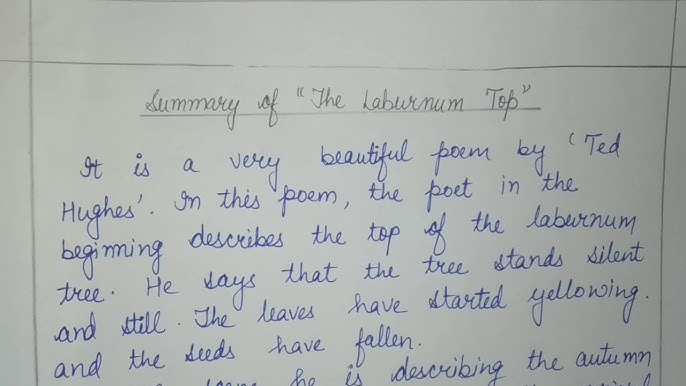 Summary of "The Laburnum Top"
It is a very beautiful poem by 'Ted
Hughes'. In this poem, the poet in the
beginning describes the top of the laburnum
tree. He says that the tree stands silent
and still. The leaves have started yellowing.
and the seeds have fallen.
he is describing the autumn